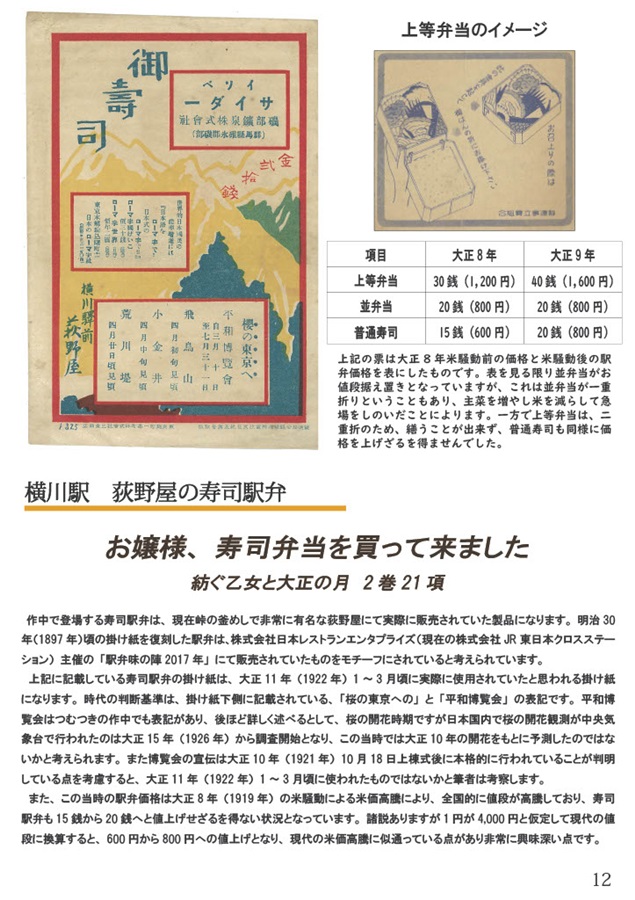 御壽司
イソベ
サイダー
磯部鑛泉株式會社
金貳拾錢
横川驛前
荻野屋
櫻の東京へ
平和博覽會
自三月十日
至七月三十一日
飛鳥山
四月初旬見頃
小金井
四月中旬見頃
荒川堤
四月廿日頃見頃
上等弁当のイメージ
項目 大正8年 大正9年
上等弁当 30銭（1,200円） 40銭（1,600円）
並弁当 20銭（800円） 20銭（800円）
普通寿司 15銭（600円） 20銭（800円）
上記の票は大正8年米騒動前の価格と米騒動後の駅
弁価格を表にしたものです。表を見る限り並弁当がお
値段据え置きとなっていますが、これは並弁当が一重
折りということもあり、主菜を増やし米を減らして急
場をしのいだことによります。一方で上等弁当は、二
重折のため、繕うことが出来ず、普通寿司も同様に価
格を上げざるを得ませんでした。
横川駅　荻野屋の寿司駅弁
お嬢様、寿司弁当を買って来ました
紡ぐ乙女と大正の月　2巻21項
作中で登場する寿司駅弁は、現在峠の釜めしで非常に有名な荻野屋にて実際に販売されていた製品になります。明治30
年（1897年）頃の掛け紙を復刻した駅弁は、株式会社日本レストランエンタプライズ（現在の株式会社JR東日本クロスステー
ション）主催の「駅弁味の陣2017年」にて販売されていたものをモチーフにされていると考えられています。
上記に記載している寿司駅弁の掛け紙は、大正11年（1922年）1～3月頃に実際に使用されていたと思われる掛け紙
になります。時代の判断基準は、掛け紙下側に記載されている、「桜の東京への」と「平和博覧会」の表記です。平和博
覧会はつむつきの作中でも表記があり、後ほど詳しく述べるとして、桜の開花時期ですが日本国内で桜の開花観測が中央気
象台で行われたのは大正15年（1926年）から調査開始となり、この当時では大正10年の開花をもとに予測したのではな
いかと考えられます。また博覧会の宣伝は大正10年（1921年）10月18日上棟式後に本格的に行われていることが判明
している点を考慮すると、大正11年（1922年）1～3月頃に使われたものではないかと筆者は考察します。
また、この当時の駅弁価格は大正8年（1919年）の米騒動による米価高騰により、全国的に値段が高騰しており、寿司
駅弁も15銭から20銭へと値上げせざるを得ない状況となっています。諸説ありますが1円が4,000円と仮定して現代の値
段に換算すると、600円から800円への値上げとなり、現代の米価高騰に似通っている点があり非常に興味深い点です。
12